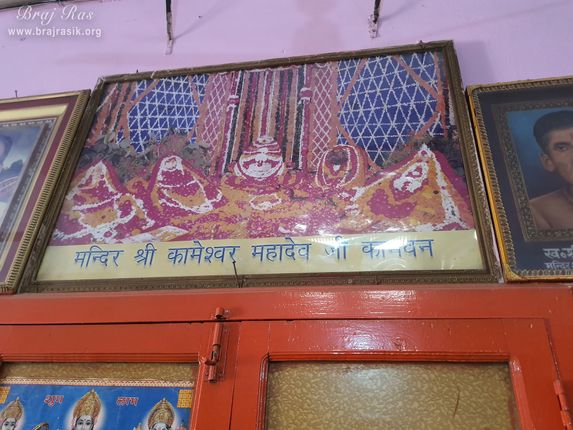 Braj Ras
www.brajrasik.org
मन्दिर श्री कामेश्वर महादेव जी कामवन
स्व०
मन्दिर
शुभ लाभ